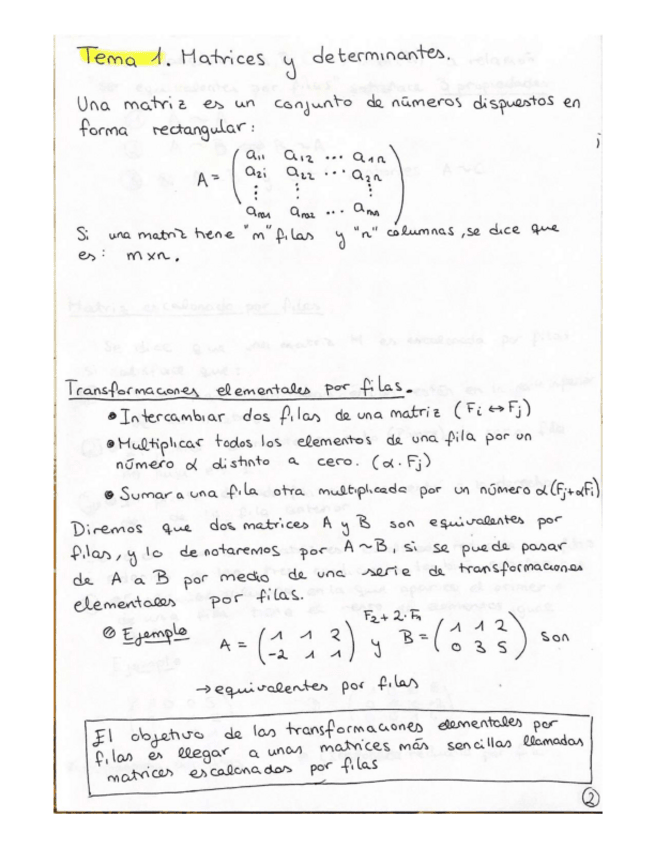 Tema 1. Matrices y determinantes.
Una matriz es un conjunto de números dispuestos en
forma rectangular:
A = ( a11 a12 ... a1n
a2i a22 ... a2n
⋮ ⋮ ⋮
am1 am2 ... amn )
Si una matriz tiene "m" filas y "n" columnas, se dice que
es: m×n.
Transformaciones elementales por filas.
• Intercambiar dos filas de una matriz (Fi ↔ Fj)
• Multiplicar todos los elementos de una fila por un
número α distinto a cero. (α · Fj)
• Sumar a una fila otra multiplicada por un número α (Fj+αFi)
Diremos que dos matrices A y B son equivalentes por
filas, y lo denotaremos por A ~ B, si se puede pasar
de A a B por medio de una serie de transformaciones
elementales por filas.
F2 + 2·F1
• Ejemplo A = ( 1 1 2 y B = ( 1 1 2 son
-2 1 1 ) 0 3 5 )
→ equivalentes por filas
El objetivo de las transformaciones elementales por
filas es llegar a unas matrices más sencillas llamadas
matrices escalonadas por filas
2